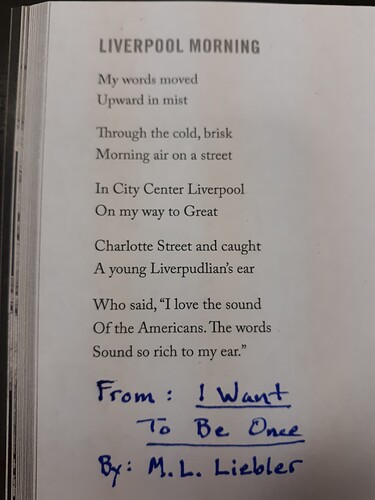 LIVERPOOL MORNING
My words moved
Upward in mist
Through the cold, brisk
Morning air on a street
In City Center Liverpool
On my way to Great
Charlotte Street and caught
A young Liverpudlian's ear
Who said, “I love the sound
Of the Americans. The words
Sound so rich to my ear.”
From: I Want
To Be Once
By: M. L. Liebler